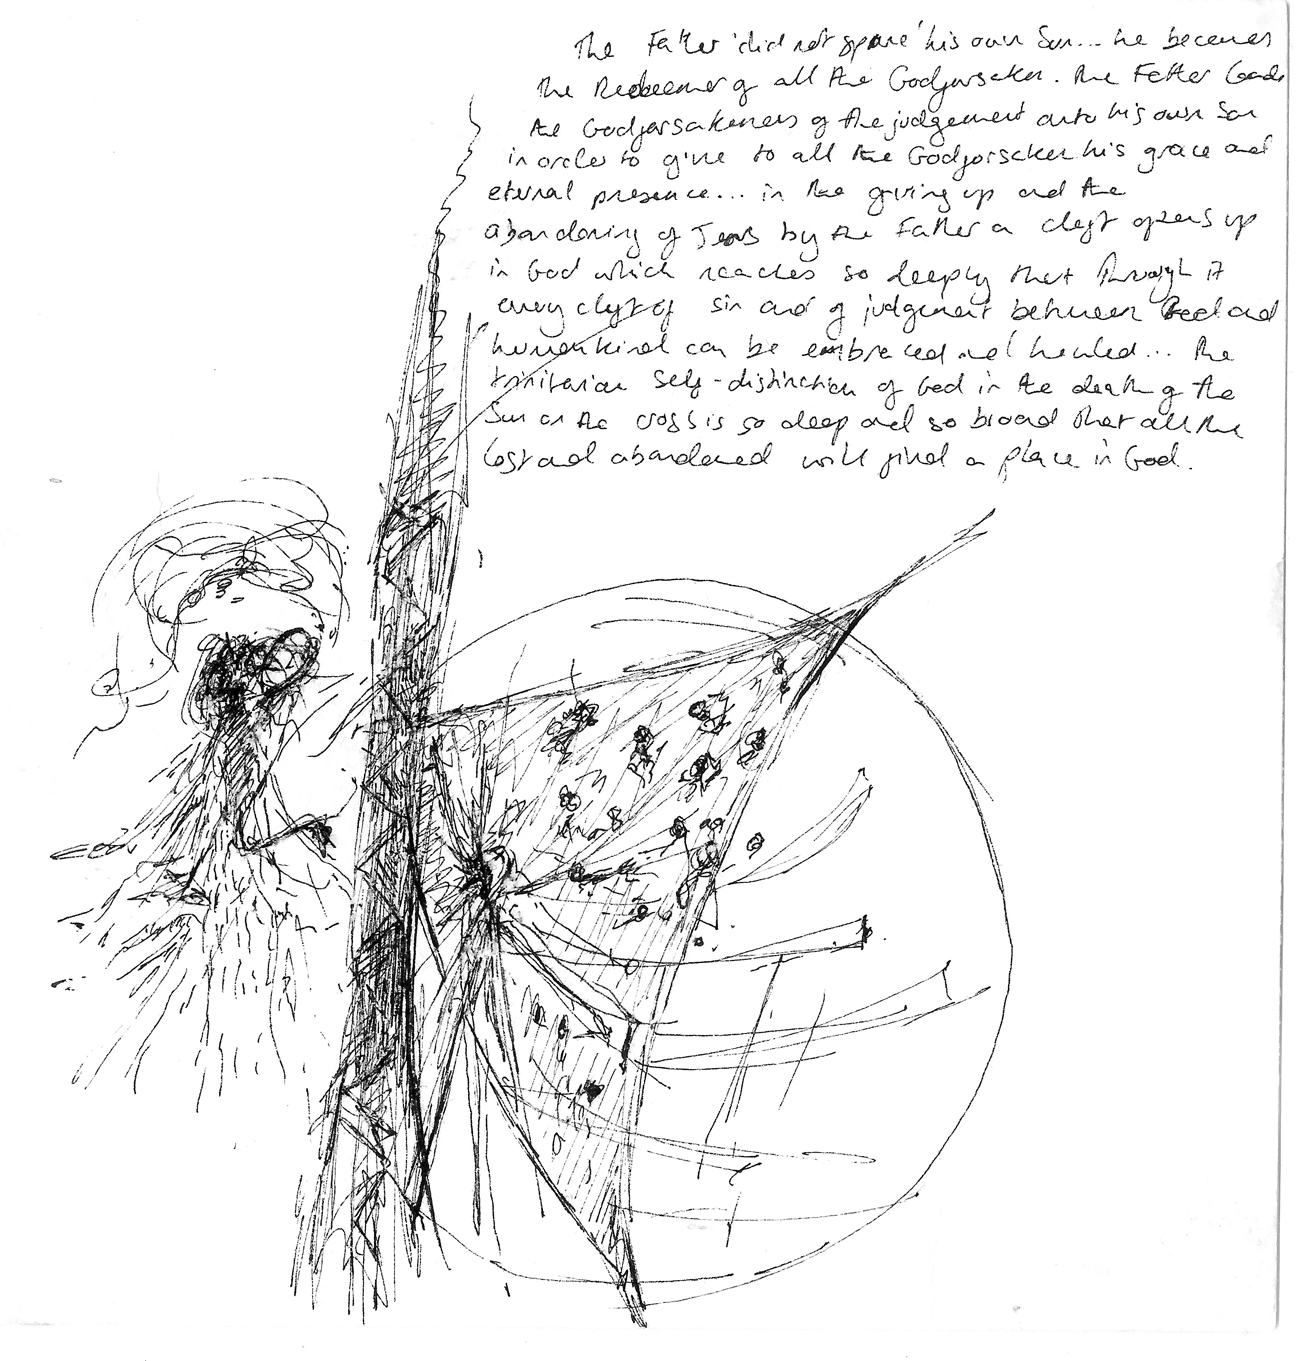 The Father 'did not spare' his own Son... he becomes
the Redeemer of all the Godforsaken. The Father loads
the Godforsakenness of the judgement onto his own Son
in order to give to all the Godforsaken his grace and
eternal presence... in the giving up and the
abandoning of Jesus by the Father a cleft opens up
in God which reaches so deeply that through it
every cleft of sin and of judgment between God and
humankind can be embraced and healed... The
trinitarian self-distinction of God in the death of the
Son on the cross is so deep and so broad that all the
lost and abandoned will find a place in God.